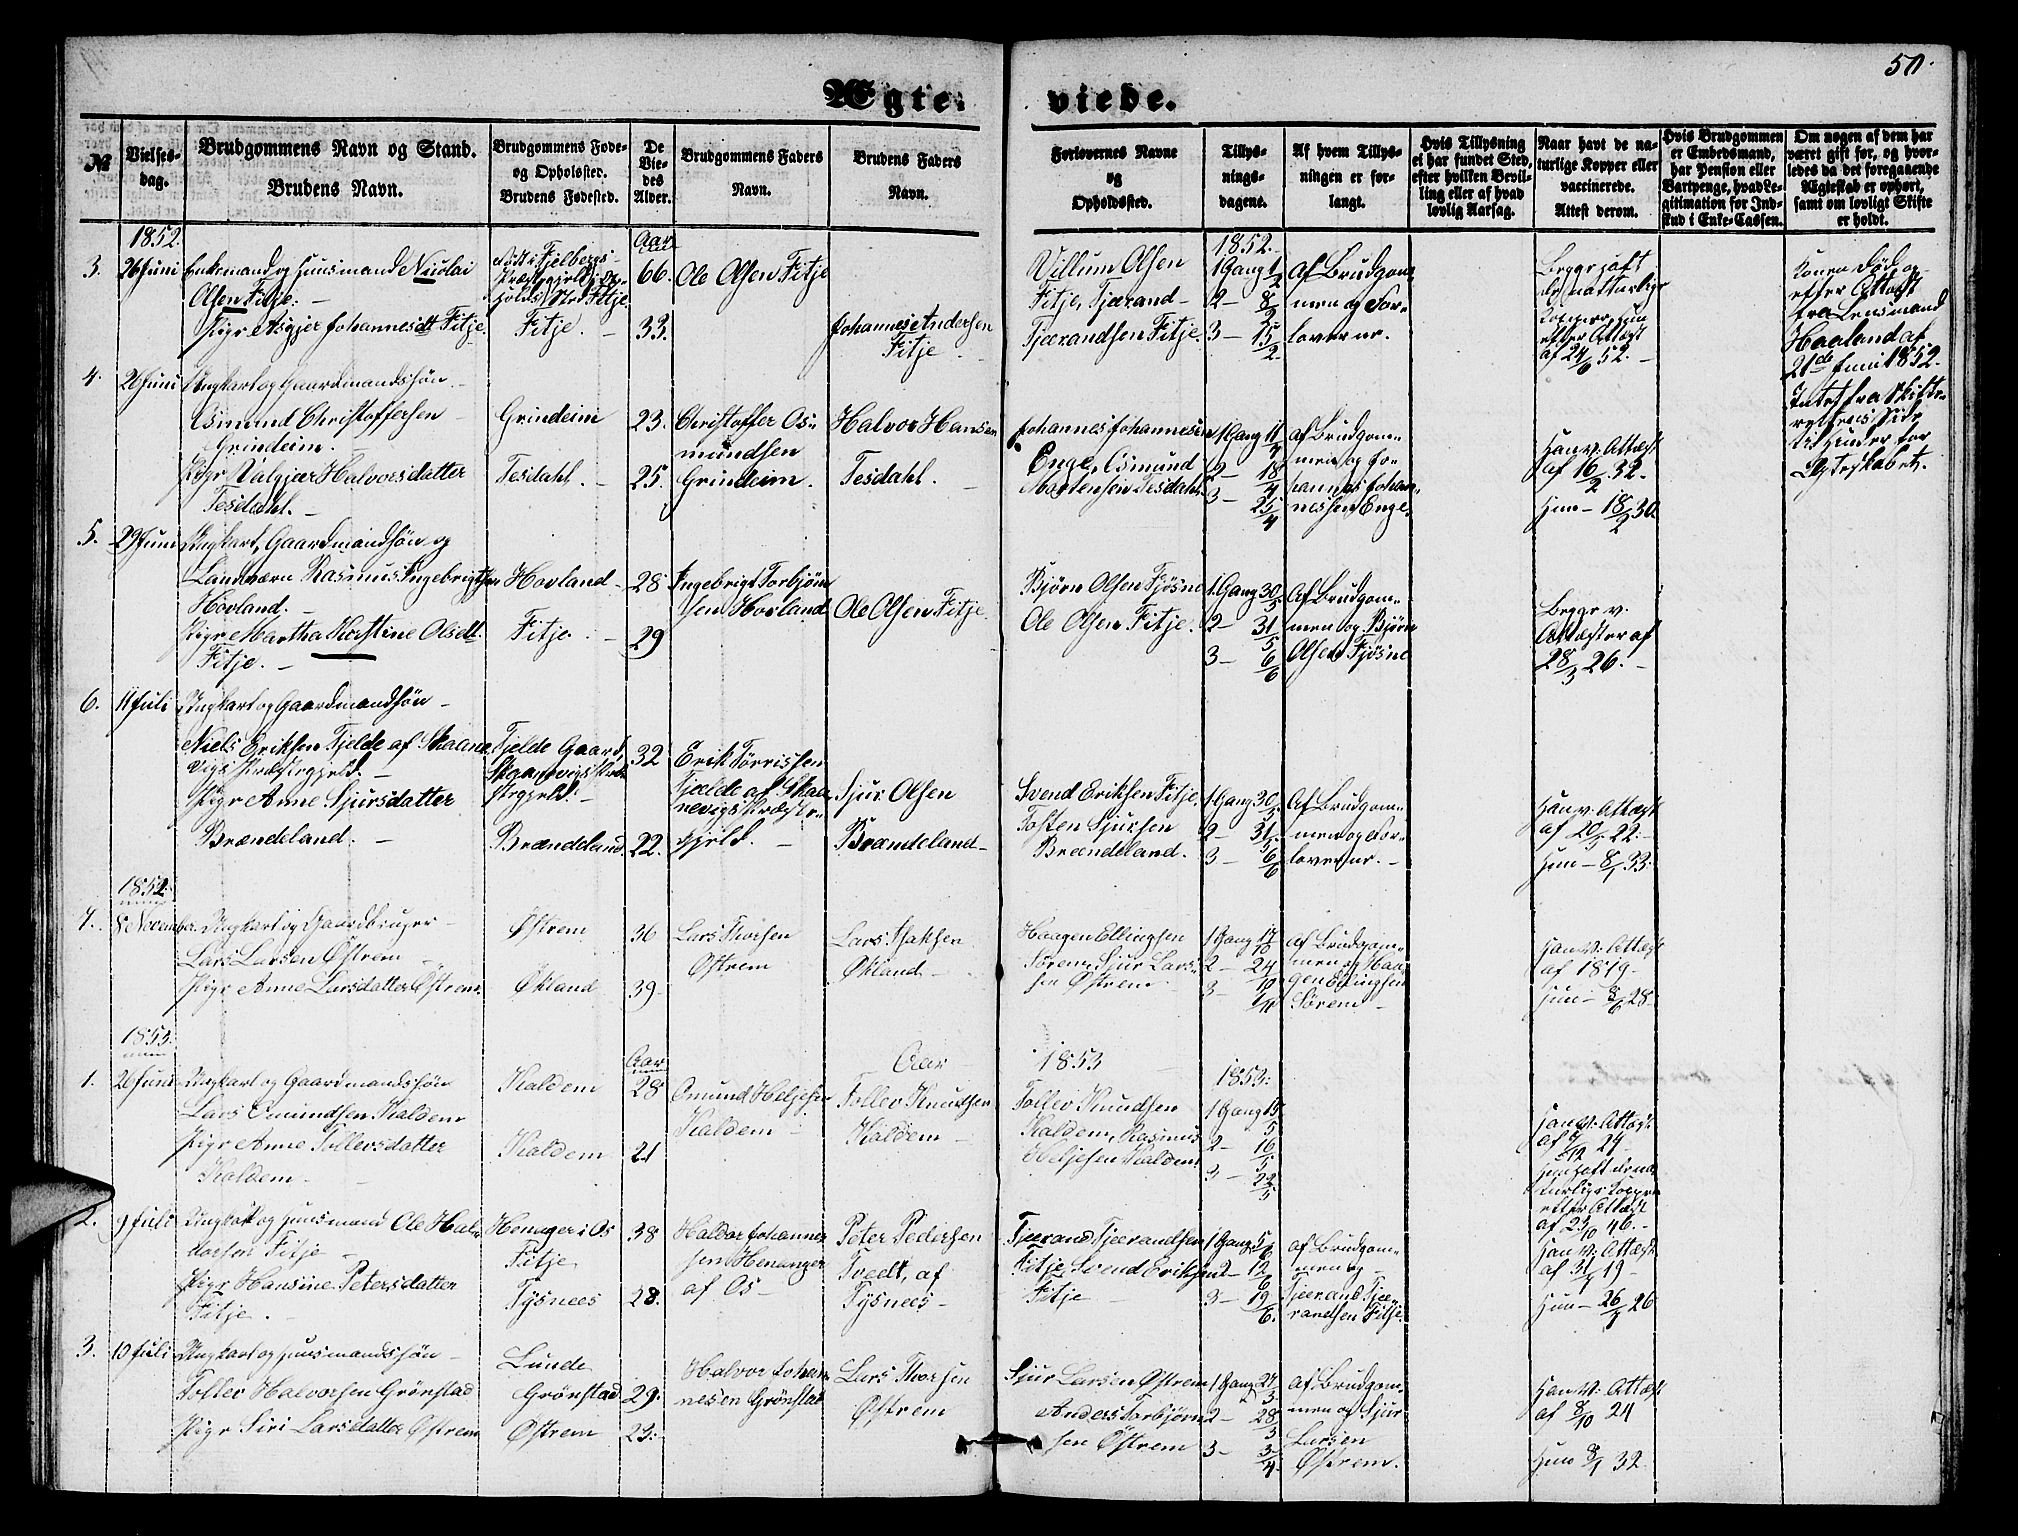 50.
Ægte-
viede.
№
Vielses-
dag.
Brudgommens Navn og Stand.
Brudens Navn.
Brudgommens Føde-
og Opholdsted.
Brudens Fødested.
De
Vie-
des
Alder.
Brudgommens Faders
Navn.
Brudens Faders
Navn.
Forlovernes Navne
og
Opholdssted.
Tillys-
nings-
dagene.
Af hvem Tillys-
ningen er for-
langt.
Hvis Tillysning
ei har fundet Sted,
efter hvilken Bevil-
ling eller af hvad
lovlig Aarsag.
Naar havt de na-
turlige Kopper eller
vaccinerede.
Attest derom.
Hvis Brudgommen
er Embedsmand,
har Pension eller
Vartpenge, hvad Le-
gitimation for Ind-
skud i Enke-Cassen.
Om nogen af dem har
været gift før, og hvor-
ledes da det foregaaende
Ægteskab er ophørt,
samt om lovligt Skifte
er holdt.
1852.
Aar
1852.
3.
26 Juni
Enkemand og Huusmand Nicolai
Olsen Fitje.
Pige Asgjer Johannesdt Fitje.
Født i Fjelbergs
Fitje.
66.
33.
Ole Olsen Fitje
Johannes Andersen
Fitje
Villum Olsen
Fitje, Tjærand
Tjærandsen Fitje.
1 Gang 1/2
2 — 8/2
3 — 15/2
Af Brudgom-
men og For-
loverne.
Begge haft
de naturlige
Kopper, hun
efter Attest
af 24/6 52.
Konen død og
efter Attest
fra Lensmand
Haaland af
21de Juni 1852.
Intet fra Skifte-
rettens Side
til Hinder for
Ægteskabet.
4.
26 Juni
Ungkarl og Gaardmandssøn
Osmund Christoffersen
Grindeim.
Pige Valgjær Halvorsdatter
Tesdahl.
Grindeim
Tesdahl.
23.
25.
Christoffer Os-
mundsen
Grindeim.
Halvor Hansen
Tesdahl.
Johannes Johannesen
Enge, Osmund
Mortensen Tesdahl.
1 Gang 11/4
2 — 18/4
3 — 25/4
Af Brudgom-
men og Jo-
hannes Johan-
nessen Enge.
Han v. Attest
af 16/2 32.
Hun — 18/2 30.
5.
29 Juni
Ungkarl, Gaardmandsøn og
Landværn Rasmus Ingebrigtsen
Hovland.
Pige Martha Kirstine Olsdt.
Fitje.
Hovland
Fitje.
28
29
Ingebrigt Torbjørn-
sen Hovland
Ole Olsen Fitje.
Bjørn Olsen Fjøsne
Ole Olsen Fitje.
1 Gang 30/5
2 — 31/5
3 — 6/6
Af Brudgom-
men og Bjørn
Olsen Fjøsne
Begge v.
Attester af
28/3 26.
6.
11 Juli
Ungkarl og Gaardmandsøn
Niels Eriksen Fjelde af Skaane-
vigs Præstegjeld.
Pige Anne Sjursdatter
Brændeland.
Fjelde Gaard,
Skaanevigs Præ-
stegjeld.
Brændeland.
32
22.
Erik Tørrissen
Fjælde af Skaa-
nevigs Præste-
gjeld.
Sjur Olsen
Brændeland
Svend Eriksen Fitje.
Tosten Sjursen
Brændeland.
1 Gang 30/5
2 — 31/5
3 — 6/6
Af Brudgom-
men og For-
loverne.
Han v. Attest
af 20/5 22.
Hun — 8/1 33.
1852.
7.
8 November.
Ungkarl og Gaardbruger
Lars Larsen Østrem
Pige Anne Larsdatter Østrem.
Østrem
Økland
36
39.
Lars Thorsen
Østrem
Lars Isaksen
Økland.
Haagen Ellingsen
Sørem, Sjur Lars-
sen Østrem
1 Gang 17/10
2 — 24/10
3 —
Af Brudgom-
men og Haa-
gen Ellingsen
Sørem
Han v. Attest
af 1819.
Hun — 8/6 28.
1853.
Aar
Aar
1853
1853.
1.
26 Juni
Ungkarl og Gaardmandssøn
Lars Omundsen Kaldem
Pige Anne Tollevsdatter
Kaldem
Kaldem
Kaldem
28
21
Omund Heljesen
Kaldem
Tollev Knudsen
Kaldem
Tollev Knudsen
Kaldem, Rasmus
Heljesen Kaldem
1 Gang 15/5
2 — 16/5
3 — 22/5
Han v. Attest
af 7/12 24
Hun haft de na-
turlige Kopper
efter Attest
af 23/10 46.
2.
9 Juli
Ungkarl og Huusmand Ole Hal-
dorsen Fitje
Pige Hansine Petersdatter
Fitje.
Henager i Os
Fitje
Tysnees
38
28.
Haldor Johannes-
sen Henanger
af Os
Peter Pedersen
Tvedt, af
Tysnees
Tjærand Tjærandsen
Fitje, Svend Eriksen
Fitje
1 Gang 5/6
2 — 12/6
3 — 19/6.
Af Brudgom-
men og
Tjærand Tjæ-
randsen Fitje.
Han v. Attest
af 31/1 19
Hun — 26/7 26
3.
10 Juli
Ungkarl og Huusmandssøn
Tollev Halvorsen Grønstad
Pige Siri Larsdatter Østrem
Lunde
Grønstad
Østrem
29.
23.
Halvor Johan-
nesen Grønstad
Lars Thorsen
Østrem
Sjur Larsen Østrem
Anders Torbjørn-
sen Østrem
1 Gang 27/3
2 — 28/3
3 — 3/4.
Af Brudgom-
men og Sjur
Larsen
Østrem.
Han v. Attest
af 8/10 24
Hun 8/1 32